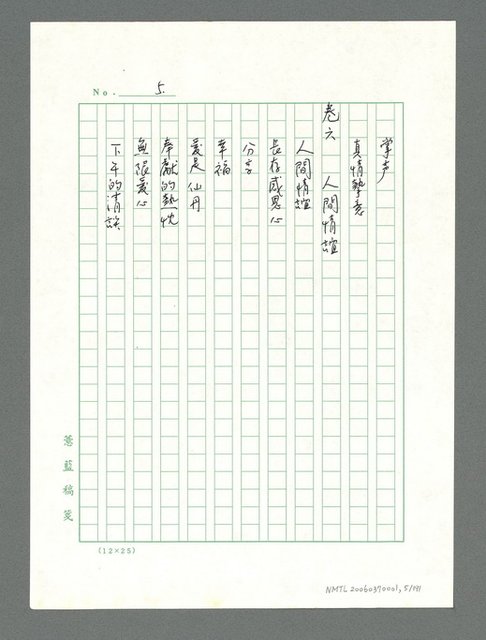 No. 5.
掌声
真情摯意
卷六 人間情誼
人間情誼
長存感恩心
分享
幸福
愛是仙丹
奉獻的熱忱
無限愛心
下午的清談
薏藍稿箋
(12×25)
NMTL 20060370001, 5/191